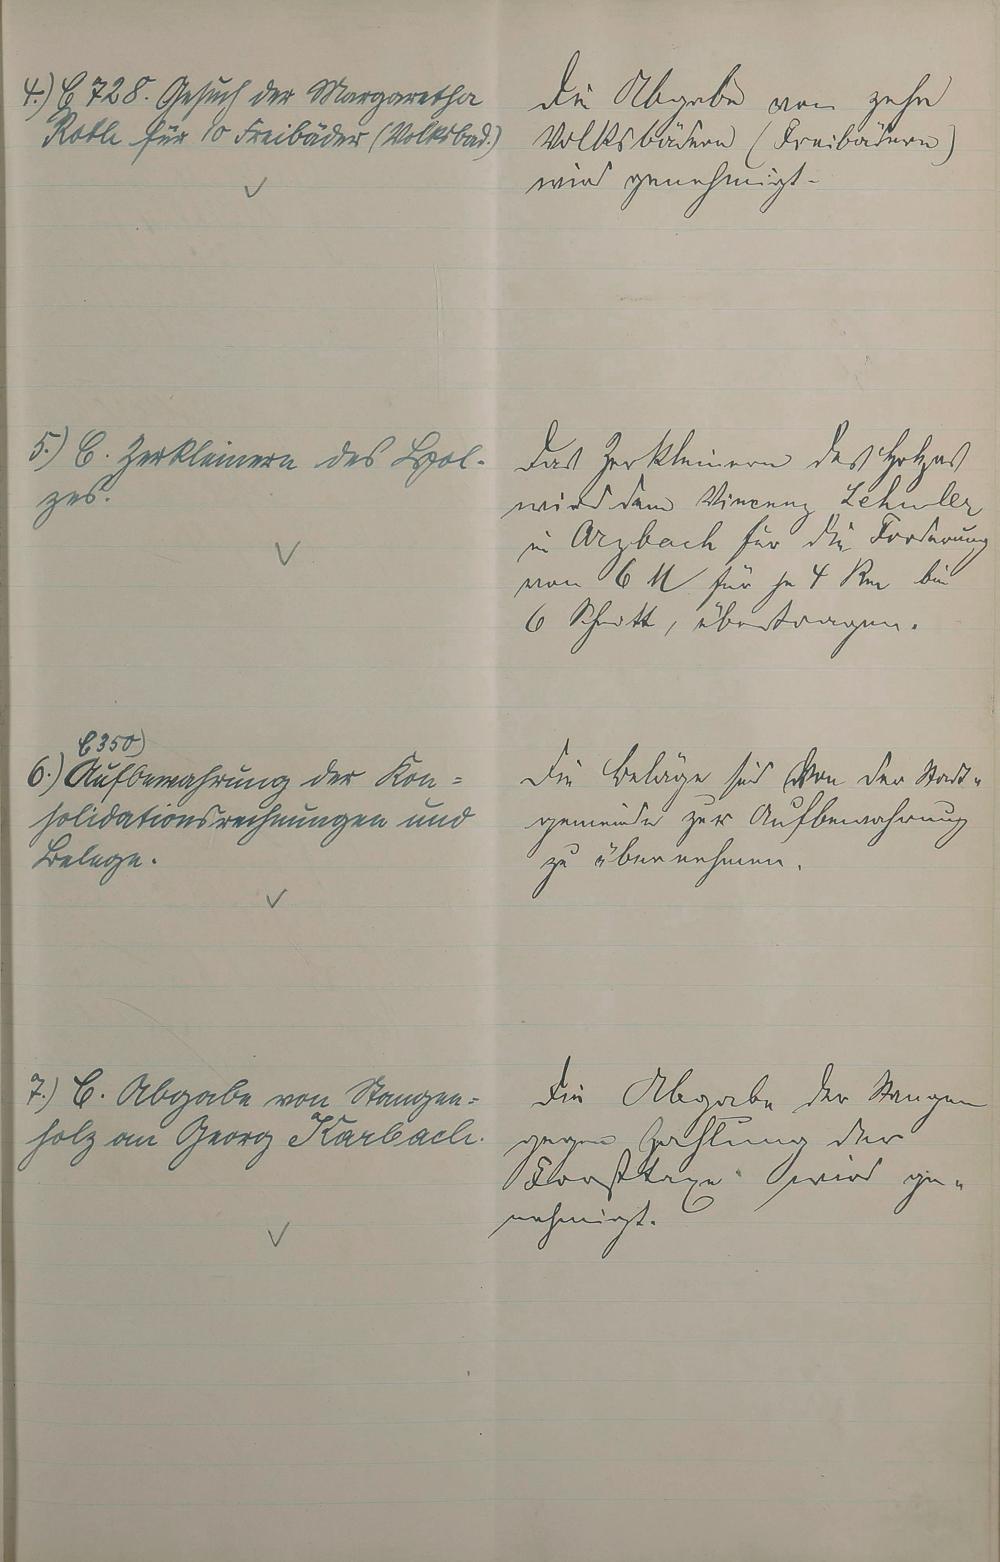 4.) C 728. Gesuch der Margaretha
Roth für 10 Freibäder (Volksbad.)
Die Abgabe von zehn
Volksbädern (Freibädern)
wird genehmigt.
5.) C. Zerkleinern des Hol-
zes.
Das Zerkleinern des Holzes
wird dem Vincenz Lehmler
in Arzbach für die Forderung
von 6 M für je 4 Rm bei
6 Schnitt, übertragen.
C 350)
6.) Aufbewahrung der Kon=
solidationsrechnungen und
Belege.
Die Beläge sind von der Stadt-
gemeinde zur Aufbewahrung
zu übernehmen.
7.) C. Abgabe von Stangen=
holz an Georg Karbach.
Die Abgabe der Stangen
gegen Zahlung der
Forsttaxe wird ge-
nehmigt.